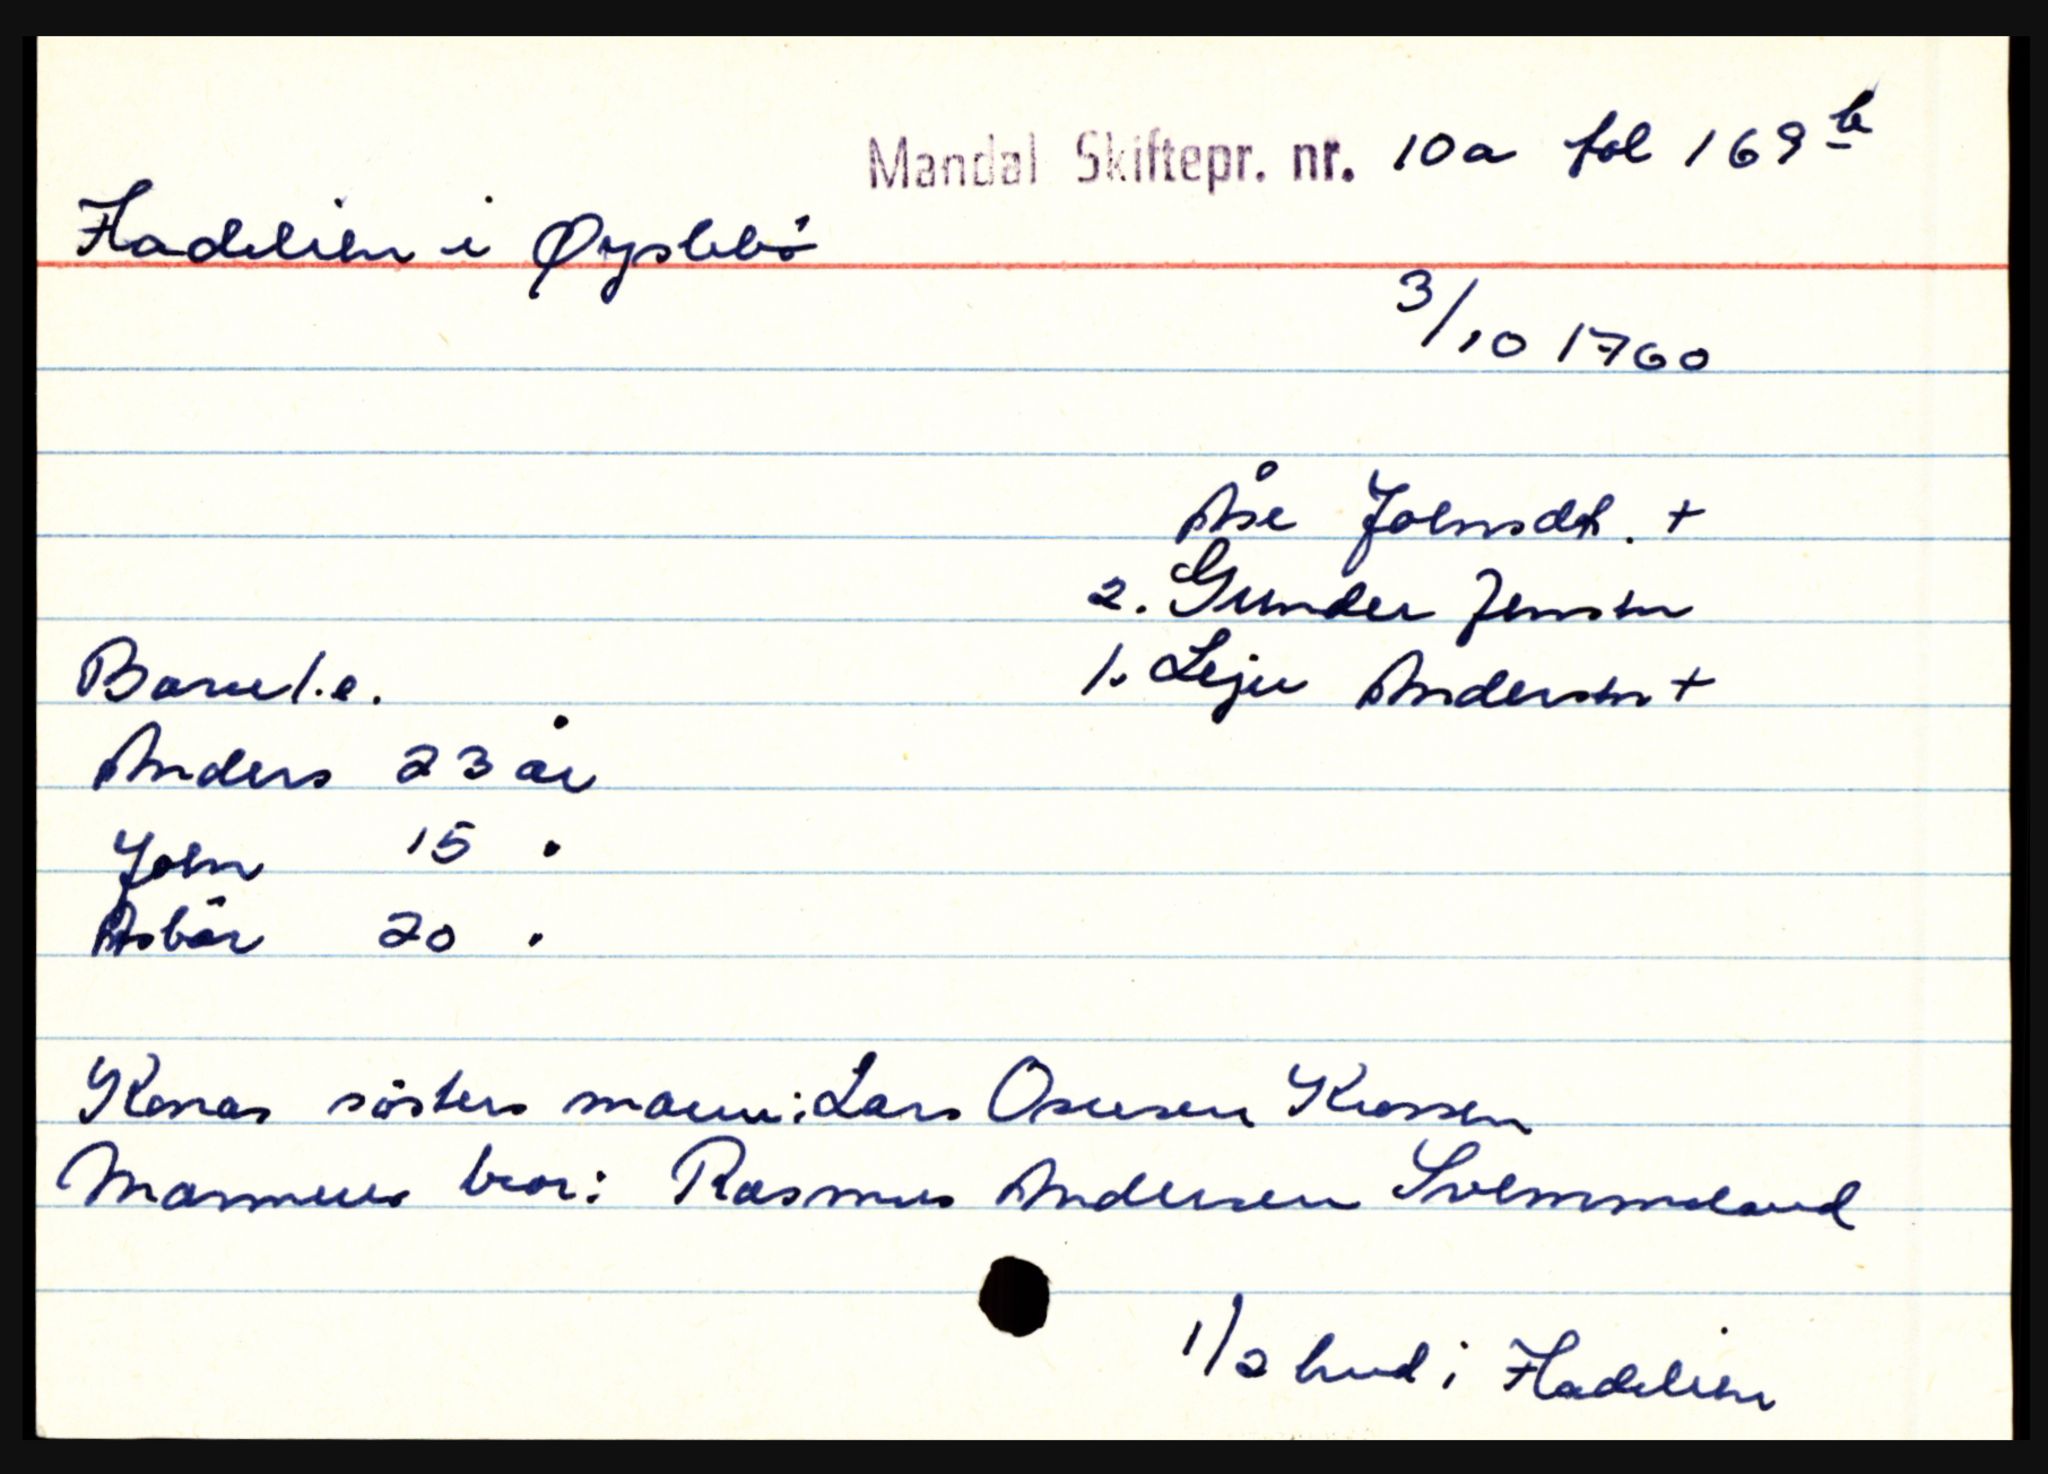 Mandal Skiftepr. nr. 10a fol 169 b
Hadelien i Øyslebö
3/10 1760
Åse Johnsdt. +
2. Gunder Jensen
Barn 1. e. 1. Leju Andersen +
Anders 23 år
John 15 "
Asbör 20 "
Konas sösters mann: Lars Osuesen Krossen
Mannens bror: Rasmus Andersen Solemmeland
1/2 hud i Hadelien